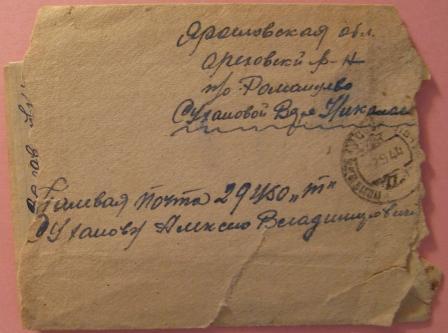 Яраславская обл.
Арефовский р-н
п/о Романцево
Сухановой Вере Николае
Палевая почта 29460 „т"
Суханову Алексею Владимирович
44